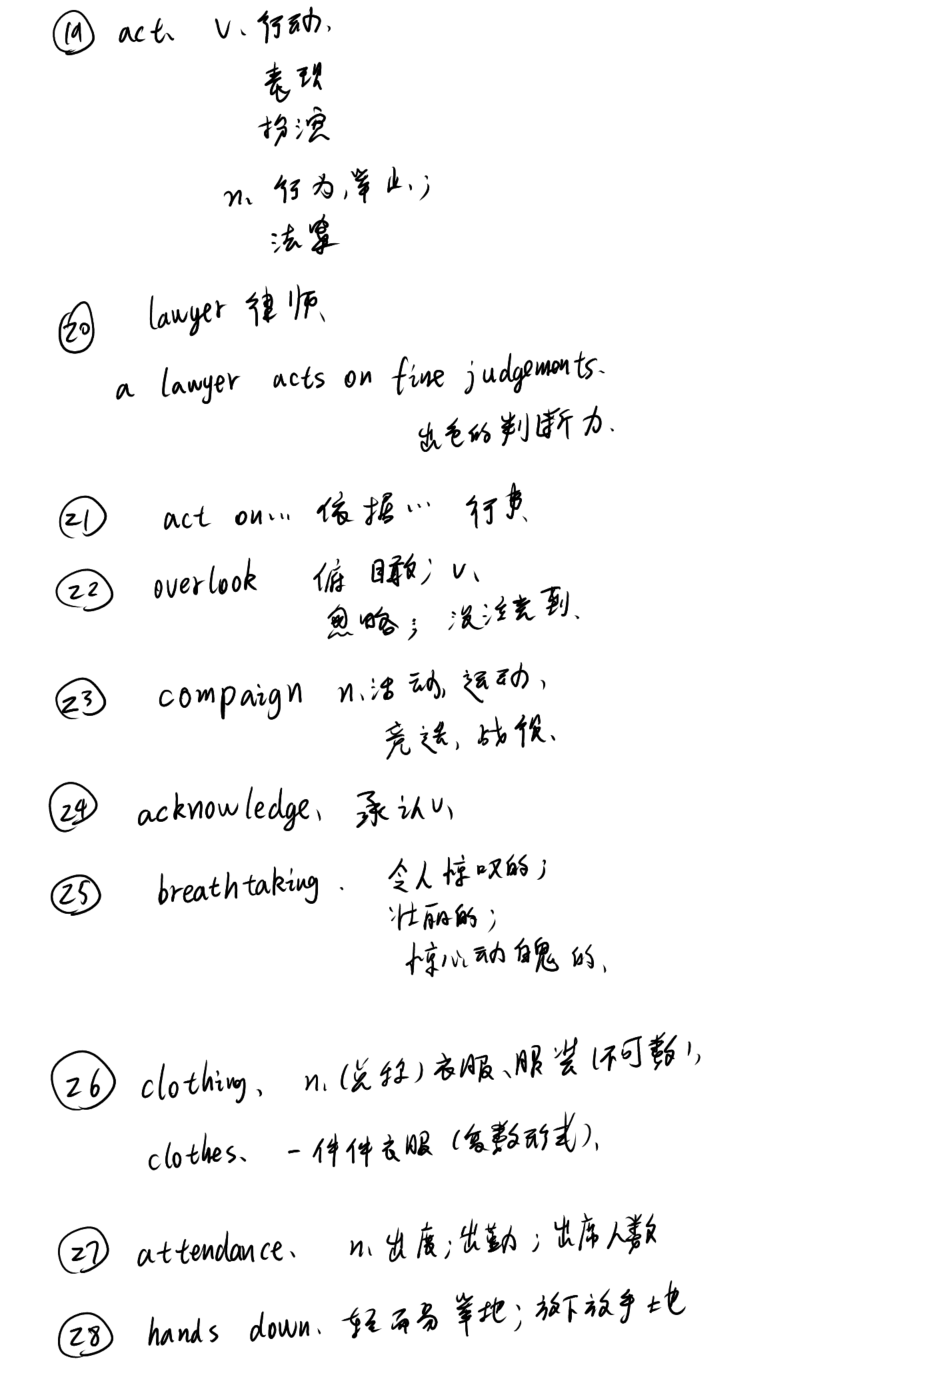 ⑲ act、 v、行动、
表现
扮演
n、行为,举止、;
法案
⑳ lawyer 律师、
a lawyer acts on fine judgements.
出色的判断力.
㉑ act on… 依据… 行事、
㉒ overlook 俯瞰; v、
忽略; 没注意到、
㉓ compaign n、活动, 运动,
竞选, 战役、
㉔ acknowledge、 承认v、
㉕ breathtaking. 令人惊叹的;
壮丽的;
惊心动魄的、
㉖ clothing、 n.(总称)衣服、服装(不可数),
clothes、 一件件衣服(复数形式)、
㉗ attendance、 n、出席;出勤;出席人数
㉘ hands down. 轻而易举地;放下放手地